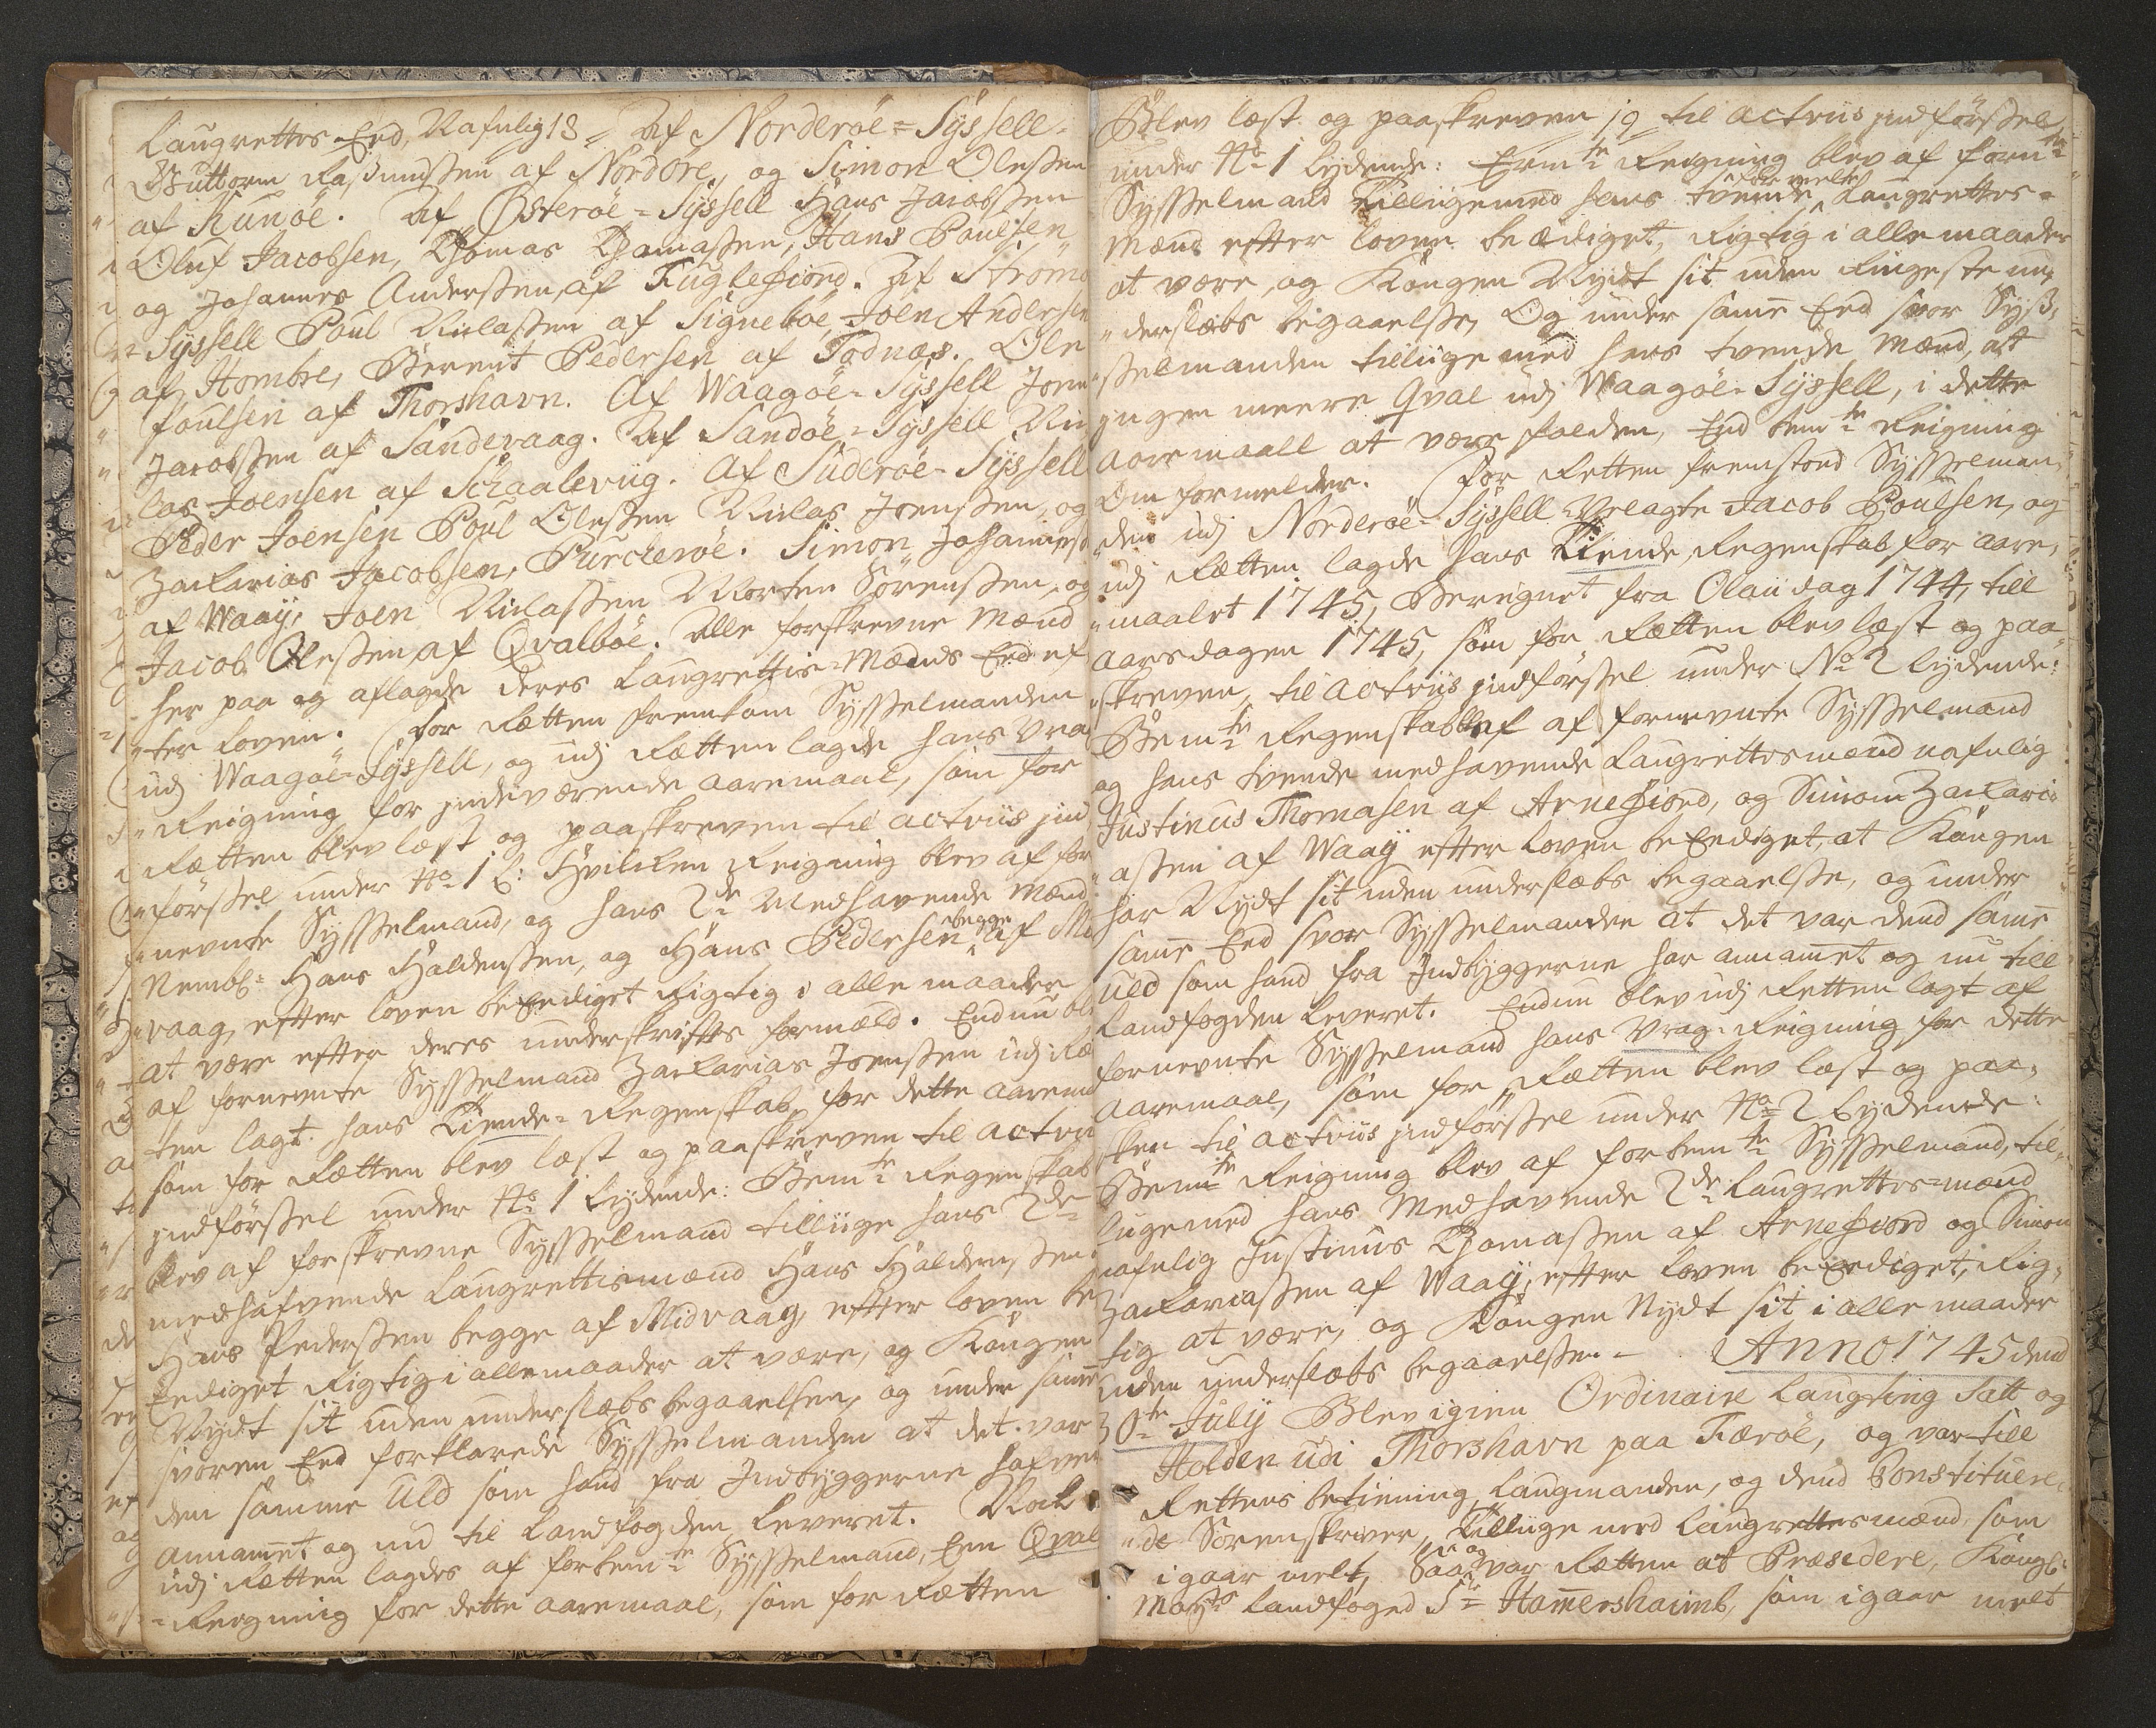 Laugrettes Eed, Nafnlig 18 = Af Norderöe=Sÿssell
Guttorm Rasmussen af Nordöre, og Simon Olessen
af Kunöe. Af Österöe=Sÿssell Hans Jacobssen
Oluf Jacobsen, Thomas Thomassen, Hans Poulsen
og Johannes Anderssen, af Fuglefiord. Af Strömö
Sÿssell Poul Niclassen af Signeböe, Joen Andersen
af Hombre, Berent Pedersen af Todnæs. Ole
Poulsen af Thorshavn. Af Waagöe=Sÿssell Joen
Jacobssen af Sandevaag. Af Sandöe=Sÿssell Nic
las Joensen af Schaalevüg. Af Suderöe=Sÿssell
Peder Joensen Poul Olessen Niclas Joenssen, og
Zacharias Jacobsen, Purckeröe. Simon Johannes
af Waaÿ, Joen Niclassen Morten Sörenssen, og
Jacob Olessen, af Qvalböe. Alle forskrevne Mænd
her paa og aflagde deres Laugrettis=Mænds Eed ef
ter Loven. For Retten fremkom Sÿsselmanden
udj Waagöe=Sÿssell, og udj Retten lagde hans Vra
Reigning for indeværende aaremaal, som for
Retten blev læst og paaskreven til actens ind
förssel under No 1 L: Hvilken Reigning blev af for
nevnte Sÿsselmand, og hans 2de Medhavende Mænd
Nembl: Hans Haldenssen, og Hans Pedersen begge af Mi
vaag, efter loven beEediget Rigtig i alle maader
at være efter deres underskrifts formæld. Endnu ble
af fornevnte Sÿsselmand Zacharias Joenssen udj Ret
ten lagt. hans Tiende=Regenskab for dette aarema
som for Retten blev læst og paaskreven til acten
indförssel under No 1 Lÿdende: Bemte Regenskab
blev af forskrevne Sÿsselmand tillüge hans 2de
medhafvende Laugrettismænd Hans Haldenssen
Hans Pederssen begge af Midvaag, efter loven be
Eediget Rigtig i allemaader at være, og Kongen
Nÿdt sit uden underslæbs begaaelsen, og under samme
svoren Eed forklarede Sÿsselmanden at det var
den samme Uld som hand fra Indbÿggerne hafver
annamet og nu til Landfogden Leveret. Nok
udj Retten lagdes af forbemte Sÿsselmand, hen Qval
Reigning for dette aaremaal, som for Retten
Blev læst og paaskreven 19 til actens indförssel
under No 1 Lÿdende: Bemte Reigning blev af fornte
Sÿsselmand Tillügemed hans tvende formelte Laugrettes=
Mænd efter loven beædiget, Rigtig i alle maader
at være, og Kongen Nÿdt sit uden Ringeste un,
derslæbs begaaelsse, Og under same Eed svor Sÿs,
selmanden tillüge med hans tvende Mænd, at
ingen meere Qval udj Waagöe=Sÿssell, i dette
aaremaall at være falden, End bemte Reigning
Om formelder. For Retten fremstod Sÿsselman
den udj Norderöe=Sÿssell Velagte Jacob Poulsen, og
udj Retten lagde hans Tiende, Regenskab for aare,
maalet 1745, Beregnet fra Olai dag 1744, till
aarsdagen 1745, som for Retten blev læst og paa
skreven, til actens indförssel under No 2 lÿdende:
Bemte Regenskab blef af fornevnte Sÿsselmand
og hans tvende medhavende Laugrettesmænd nafnlig
Justinus Thomasen af Arnefiord, og Simon Zachari
assen af Waaÿ efter loven beEediget, at Kongen
har Nÿdt sit uden underslæbs begaaelsse, og under
same Eed svor Sÿsselmanden at det var dend same
Uld som hand fra Indbÿggerne har annamet og nu till
Landfogden Leveret. Endnu blev udj Retten lagt af
fornevnte Sÿsselmand hans Vrag=Reigning for dette
aaremaal, som for Retten blev læst og paa,
skr. til actens indförssel under No 2 Lÿdende:
Bemte Reigning blev af forbemte Sÿsselmand, til
lügemed hans Medhavende 2de Laugrettes=mænd
nafnlig Justinus Thomassen af Arnefiord og Simon
Zachariassen af Waaÿ, efter loven beEediget, Rig,
tig at være, og Kongen Nÿdt sit i alle maader
uden underslæbs begaaelssen. Anno 1745 dend
30te Julÿ Blev igien Ordinaire Laugting Satt og
Holden udi Thorshavn paa Færöe, og var till
Rettens betiening Laugmanden, og dend Constituere
de Sorenskriver, Tillüge med Laugrettesmænd som
igaar melt, Saa og var Retten at Præsidere, Kongl:
Maÿts Landfoged Sr Hamershaimb, som igaar melt